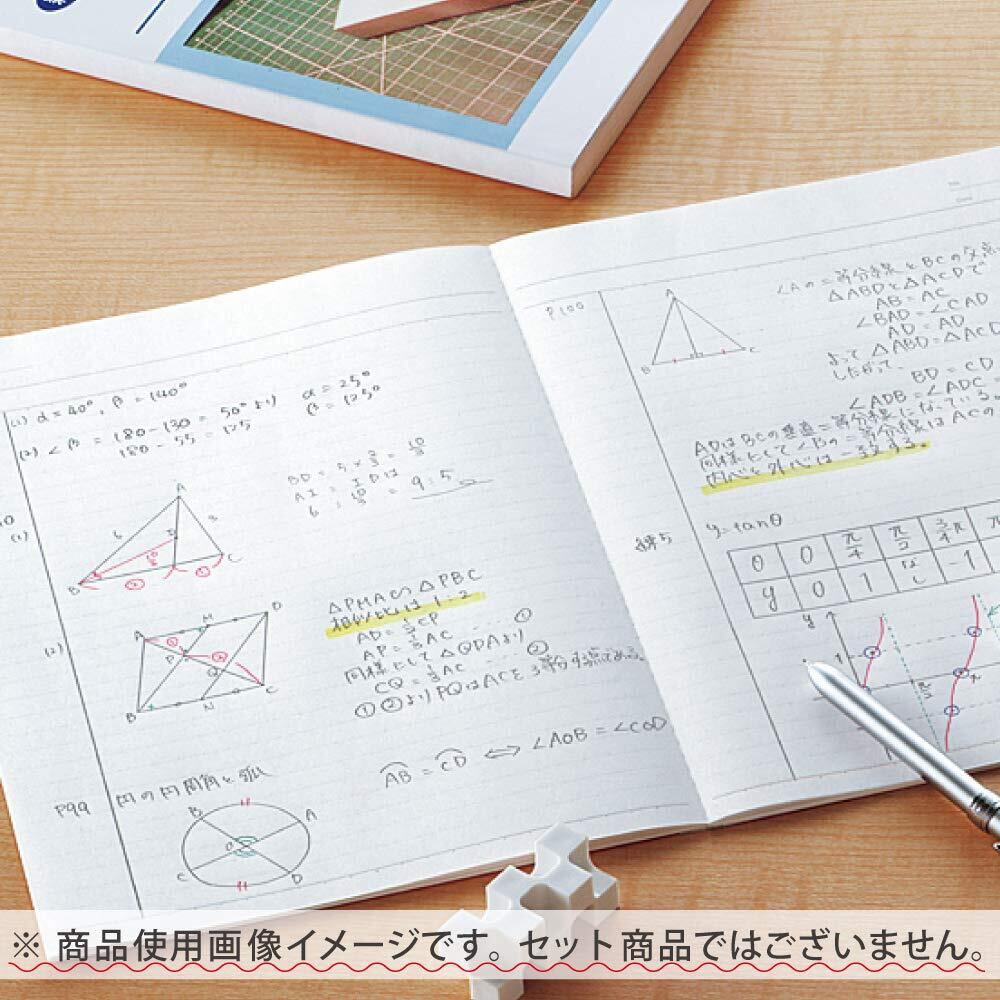 (1) α=40°, β=140°
α=25°
(2) ∠β = 180-130 = 50°より
β=125°
180-55=125
BD = 5×2/3 = 10/3
AI : IDは
6 : 10/3 = 9:5
(1)
A
6
3
B
C
△PMA∽△PBC
相似比は1:2
AP=1/3AC … ①
同様にして△QDAより
CQ=1/3AC … ②
①②よりPQはACを3等分する点である。
(2)
A
M
D
P
Q
B
N
C
P99
円の円周角と弧
AB = CD ⇔ ∠AOB = ∠COD
B
A
O
C
D
P100
A
B
C
∠Aの二等分線とBCの交点
△ABDと△ACDで
AB=AC
∠BAD=∠CAD
AD=AD
よって△ABD=△ACD
したがって、
BD=CD
∠ADB=∠ADC=
ADはBCの垂直二等分線になっている。
同様にして∠Bの二等分線はACの
内心と外心は一致する。
練5
y=tanθ
θ 0 π/4 π/2 3/4π π
y 0 1 なし -1
y
1
π/2
x
※ 商品使用画像イメージです。セット商品ではございません。